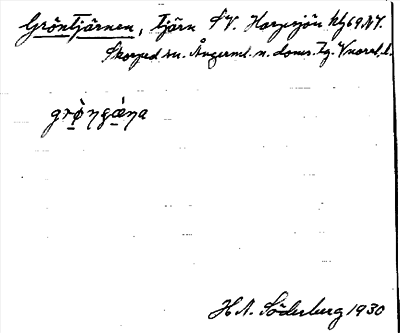 Gröntjärnen, Tjärn SV. Harpsjön kbl 69 NV.
Skorped sn. Ångerml. n. doms. Tg. Vnorrl. l.
grö̀ŋgæ̀ŋa
H.N. Söderberg 1930